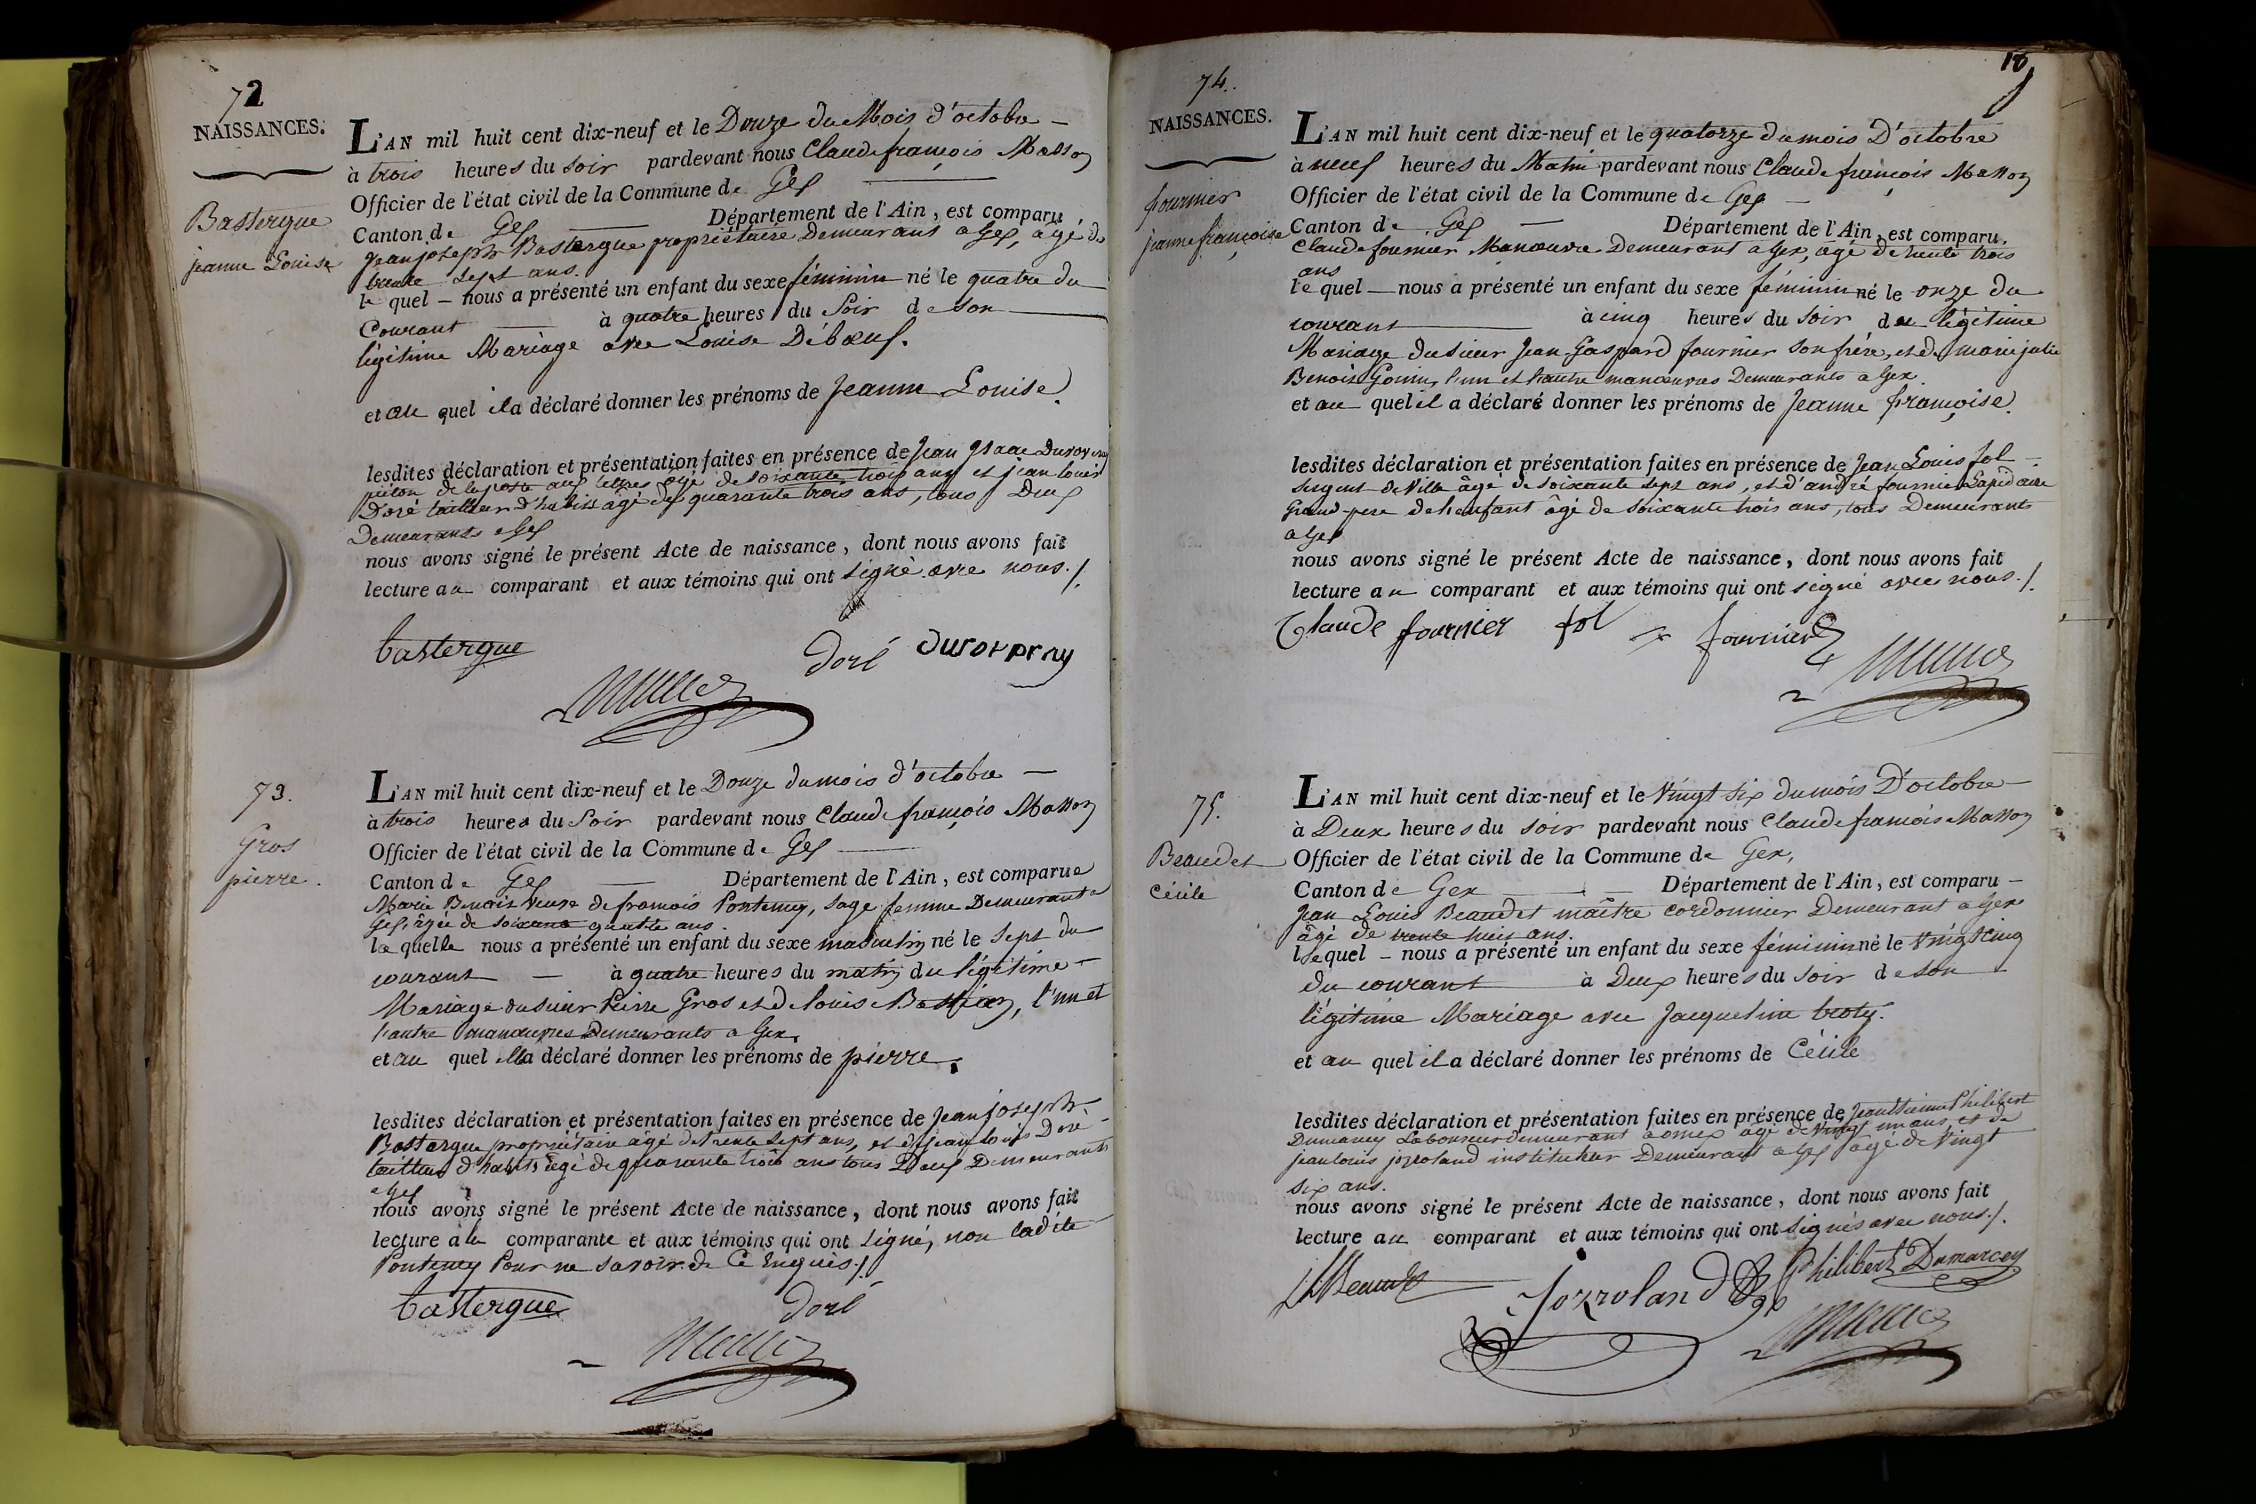 72
NAISSANCES.
Bastergue
jeanne Louise
L'AN mil huit cent dix-neuf et le Douze du Mois d'octobre
à trois heures du soir pardevant nous Claude françois Masson
Officier de l'état civil de la Commune de Gex
Canton de Gex Département de l'Ain, est comparu
jean joseph Bastergue propriétaire Demeurant a Gex, âgé de
trente sept ans.
le quel nous a présenté un enfant du sexe féminin né le quatre du
Courant à quatre heures du Soir de son
légitime Mariage avec Louise Débœuf.
et au quel il a déclaré donner les prénoms de Jeanne Louise.
lesdites déclaration et présentation faites en présence de Jean Isaac
piéton de la poste aux lettres âgé de soixante trois ans et jean louis
Doré tailleur d'habits âgé de quarante trois ans, tous Deux
Demeurants a Gex
nous avons signé le présent Acte de naissance, dont nous avons fait
lecture au comparant et aux témoins qui ont signé avec nous./.
bastergue
doré
73.
Gros
pierre.
L'AN mil huit cent dix-neuf et le Douze du mois d'octobre
à trois heures du Soir pardevant nous Claude françois Masson
Officier de l'état civil de la Commune de Gex
Canton de Gex Département de l'Ain, est comparue
Marie Benoit Veuve de francois Ponteney, sage femme Demeurant a
Gex, âgée de soixante quatre ans.
la quelle nous a présenté un enfant du sexe masculin né le sept du
courant à quatre heures du matin du légitime
Mariage du sieur Pierre Gros et de louise Bastian, l'un et
l'autre manœuvres Demeurants a Gex.
et au quel elle a déclaré donner les prénoms de pierre.
lesdites déclaration et présentation faites en présence de Jean joseph
Bastergue propriétaire âgé de trente sept ans, et de jean louis Doré
tailleur d'habits âgé de quarante trois ans tous Deux Demeurants
a Gex
nous avons signé le présent Acte de naissance, dont nous avons fait
lecture à la comparante et aux témoins qui ont signé, non ladite
Ponteney Pour ne savoir de Ce Enquis./.
bastergue
doré
18
74.
NAISSANCES.
fournier
jeanne françoise
L'AN mil huit cent dix-neuf et le quatorze du mois D'octobre
à neuf heures du Matin pardevant nous Claude françois Masson
Officier de l'état civil de la Commune de Gex
Canton de Gex Département de l'Ain, est comparu
Claude fournier Manœuvre Demeurant a Gex, âgé de trente trois
ans
le quel nous a présenté un enfant du sexe féminin né le onze du
courant à cinq heures du soir du légitime
Mariage du sieur Jean Gaspard fournier son frère, et de marie julie
Benoit Gonin, l'un et l'autre manœuvres Demeurants a Gex.
et au quel il a déclaré donner les prénoms de Jeanne françoise.
lesdites déclaration et présentation faites en présence de Jean Louis fol
sergent de Ville âgé de soixante sept ans, et d'andré fournier Lapidaire
Grand-pere de l'enfant âgé de soixante trois ans, tous Demeurants
a Gex
nous avons signé le présent Acte de naissance, dont nous avons fait
lecture au comparant et aux témoins qui ont signé avec nous./.
Claude fournier fol fournier
75.
Beaudet
Cécile
L'AN mil huit cent dix-neuf et le Vingt six du mois D'octobre
à Deux heures du soir pardevant nous Claude francois Masson
Officier de l'état civil de la Commune de Gex,
Canton de Gex Département de l'Ain, est comparu
Jean Louis Beaudet maître cordonnier Demeurant a Gex
âgé de trente huit ans.
lequel nous a présenté un enfant du sexe féminin né le Vingt cinq
du courant à Deux heures du soir de son
légitime Mariage avec Jacqueline broty.
et au quel il a déclaré donner les prénoms de Cécile
lesdites déclaration et présentation faites en présence de Philibert
Dumarcey Laboureur demeurant à ornex âgé de Vingt un ans, et de
jean louis jozroland instituteur Demeurant a Gex âgé de Vingt
six ans.
nous avons signé le présent Acte de naissance, dont nous avons fait
lecture au comparant et aux témoins qui ont signés avec nous./.
Jozroland Philibert Dumarcey